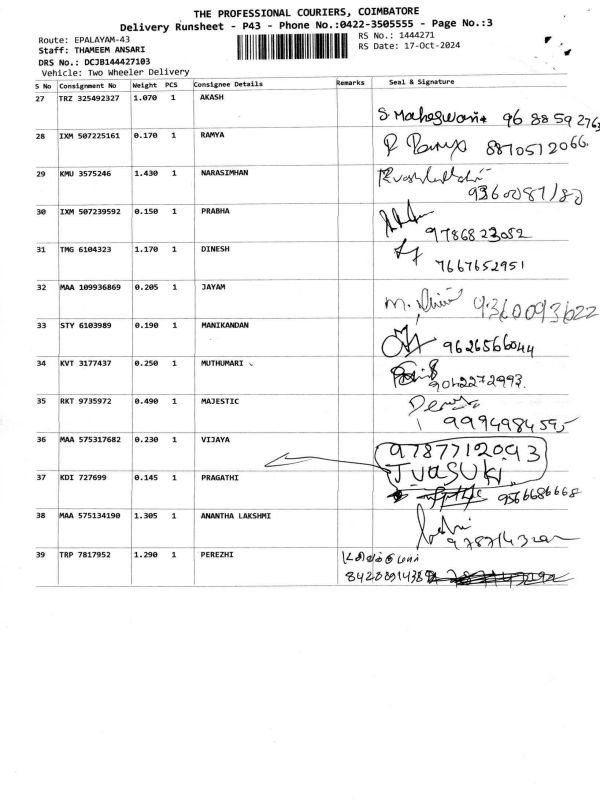 THE PROFESSIONAL COURIERS, COIMBATORE
Delivery Runsheet - P43 - Phone No.:0422-3505555 - Page No.:3
Route: EPALAYAM-43
RS No.: 1444271
Staff: THAMEEM ANSARI
RS Date: 17-Oct-2024
DRS No.: DCJB144427103
Vehicle: Two Wheeler Delivery
S No Consignment No Weight PCS Consignee Details Remarks Seal & Signature
27 TRZ 325492327 1.070 1 AKASH
S. Maheswari 96 88592763
28 IXM 507225161 0.170 1 RAMYA
R Ramya 8870512066.
29 KMU 3575246 1.430 1 NARASIMHAN
30 IXM 507239592 0.150 1 PRABHA
9786823052
31 TMG 6104323 1.170 1 DINESH
7667652951
32 MAA 109936869 0.205 1 JAYAM
9360093622
33 STY 6103989 0.190 1 MANIKANDAN
9626566044
34 KVT 3177437 0.250 1 MUTHUMARI
35 RKT 9735972 0.490 1 MAJESTIC
9994984595
36 MAA 575317682 0.230 1 VIJAYA
9787712093
J VASUKI
37 KDI 727699 0.145 1 PRAGATHI
9566686668
38 MAA 575134190 1.305 1 ANANTHA LAKSHMI
39 TRP 7817952 1.290 1 PEREZHI